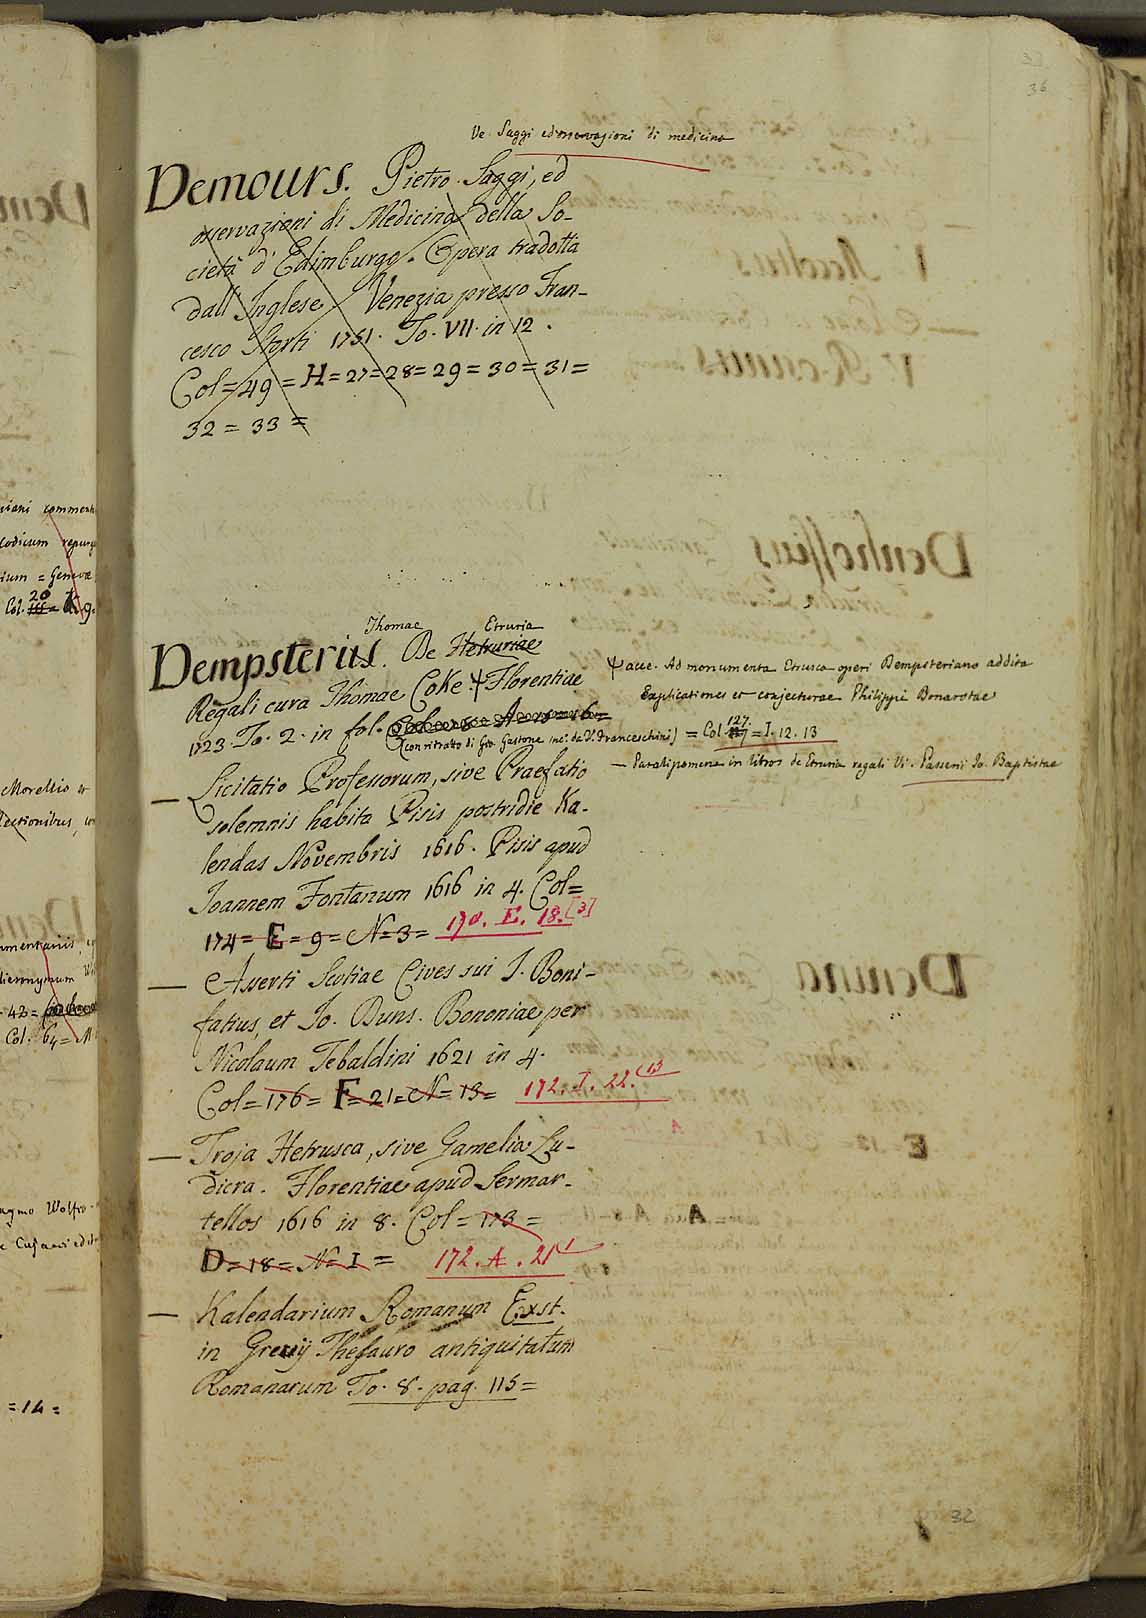 36
Ve. Saggi ed osservazioni di medicina
Demours. Pietro. Saggi, ed
osservazioni di Medicina della So-
cietà d'Edimburgo. Opera tradotta
dall'Inglese Venezia presso Fran-
cesco Storti 1751. To. VII. in 12.
Col=49=H=27=28=29=30=31=
32=33=
Thomae Etruria
Dempsterius. De Hetruriae
Regali cura Thomae Coke. Ψ Florentiae
1723. To. 2. in fol.
(con ritratto di Gio. Gastone inc. da V. Franceschini) = Col. 127. = I. 12. 13
Ψ acce. Ad monumenta Etrusca operi Dempsteriano addita
Explicationes et conjecturae Philippi Bonarotae
— Paralipomena in libros de Etruria regali Vi. Passerii Jo. Baptistae
— Licitatio Professorum, sive Praefatio
solemnis habita Pisis postridie Ka-
lendas Novembris 1616. Pisis apud
Joannem Fontanum 1616 in 4. Col=
174=E=9=N=3= 170. E. 18. [3]
— Asserti Scotiae Cives sui S. Boni-
fatius, et Jo. Duns. Bononiae per
Nicolaum Tebaldini 1621 in 4.
Col=176=F=21=N=13= 172. I. 22. 13
— Troja Hetrusca, sive Gamelia Lu-
dicra. Florentiae apud Sermar-
tellos 1616 in 8. Col=173=
D=18=N=I= 172. A. 21 1
— Kalendarium Romanum Exst.
in Grevij Thesauro antiquitatum
Romanarum To. 8. pag. 115=
32
commen
codicum repurg
= Genevae
Col. 20 = K 9=
Morellio et
lectionibus,
Hieronymum
42=
Col. 64= M
Wolfio
=14=